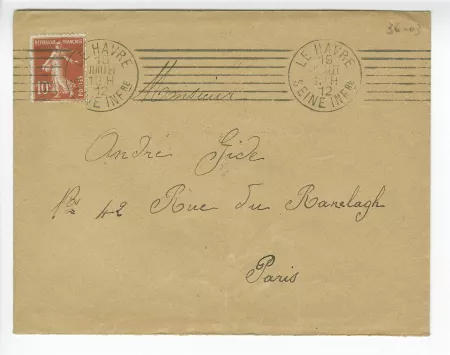 36-03
RÉPUBLIQUE FRANÇAISE
10c
POSTES
LE HAVRE
12
SEINE INFRE
LE HAVRE
12
SEINE INFRE
Monsieur
André Gide
42 Rue du Ranelagh
Paris